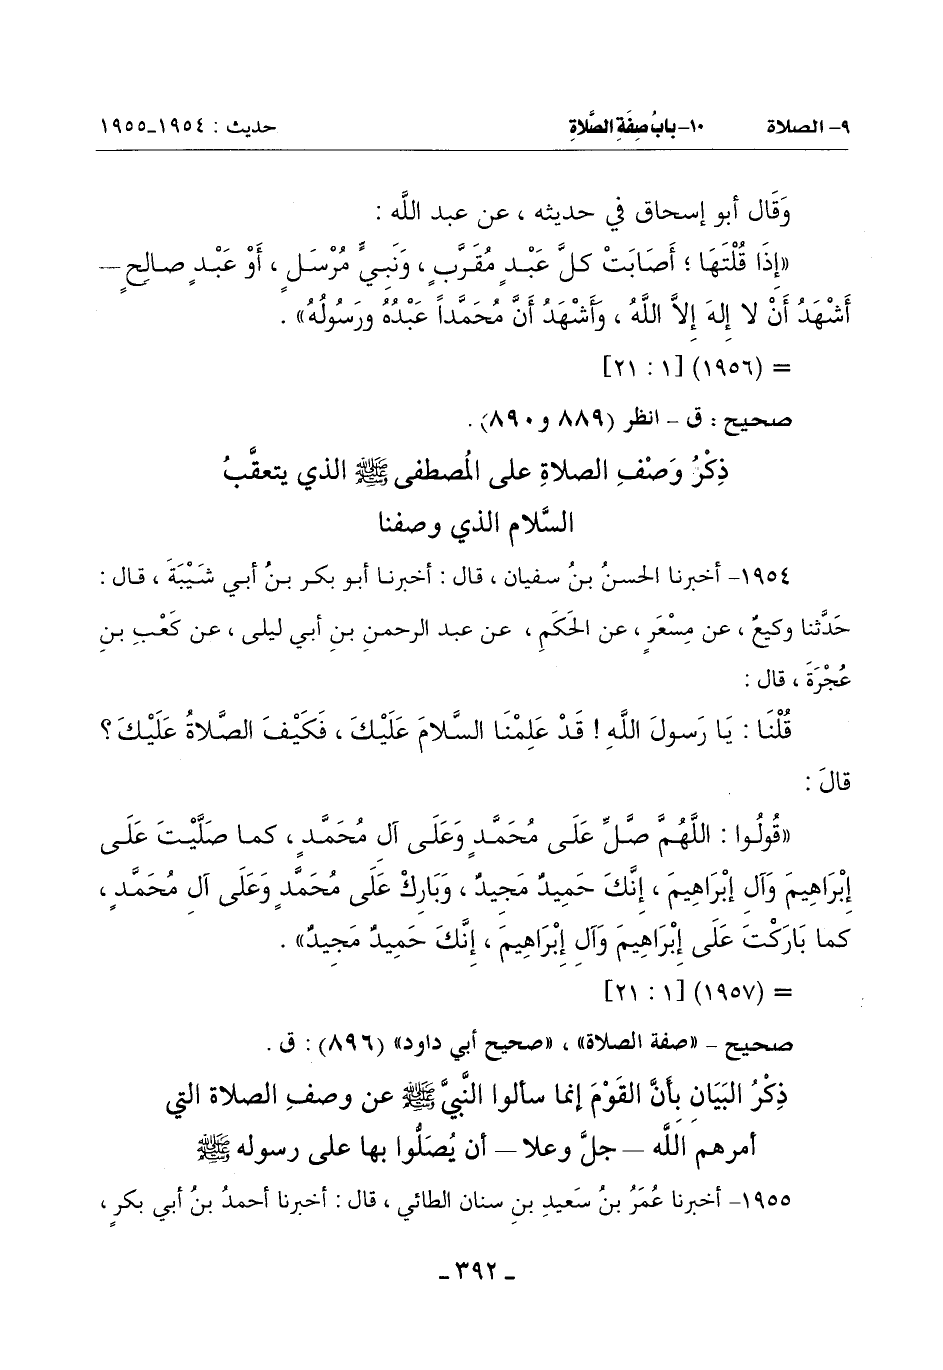 ٩- الصلاة ١٠- بابُ صِفَةِ الصَّلاةِ حديث : ١٩٥٤-١٩٥٥
وَقَال أبو إسحاق في حديثه ، عن عبد اللَّه :
«إِذَا قُلْتَهَا ؛ أَصَابَتْ كلَّ عَبْدٍ مُقَرَّبٍ ، وَنَبِيٍّ مُرْسَلٍ ، أَوْ عَبْدٍ صالحٍ —
أَشْهَدُ أَنْ لا إِلهَ إِلاَّ اللَّهُ ، وَأَشْهَدُ أَنَّ مُحَمَّداً عَبْدُهُ ورَسُولُهُ» .
= (١٩٥٦) [١ : ٢١]
صحيح : ق - انظر (٨٨٩ و ٨٩٠) .
ذِكْرُ وَصْفِ الصلاةِ على المُصطفى ﷺ الذي يتعقَّبُ
السَّلام الذي وصفنا
١٩٥٤- أخبرنا الحسنُ بنُ سفيان ، قال : أخبرنا أبو بكر بنُ أبي شَيْبَةَ ، قال :
حَدَّثنا وكيعٌ ، عن مِسْعَرٍ ، عن الحَكَمِ ، عن عبد الرحمنِ بنِ أبي ليلى ، عن كَعْبِ بنِ
عُجْرَةَ ، قال :
قُلْنَا : يَا رَسولَ اللَّهِ ! قَدْ عَلِمْنَا السَّلامَ عَلَيْكَ ، فَكَيْفَ الصَّلاةُ عَلَيْكَ ؟
قالَ :
«قُولُوا : اللَّهُمَّ صَلِّ عَلَى مُحَمَّدٍ وَعَلَى آلِ مُحَمَّدٍ ، كما صَلَّيْتَ عَلَى
إِبْرَاهِيمَ وَآلِ إِبْرَاهِيمَ ، إِنَّكَ حَمِيدٌ مَجِيدٌ ، وَبَارِكْ عَلَى مُحَمَّدٍ وَعَلَى آلِ مُحَمَّدٍ ،
كما بَارَكْتَ عَلَى إِبْرَاهِيمَ وَآلِ إِبْرَاهِيمَ ، إِنَّكَ حَمِيدٌ مَجِيدٌ» .
= (١٩٥٧) [١ : ٢١]
صحيح - «صفة الصلاة» ، «صحيح أبي داود» (٨٩٦) : ق .
ذِكْرُ البَيَانِ بأنَّ القَوْمَ إنما سألوا النَّبيَّ ﷺ عن وصفِ الصلاة التي
أمرهم اللَّه — جلَّ وعلا — أن يُصَلُّوا بها على رسوله ﷺ
١٩٥٥- أخبرنا عُمَرُ بنُ سَعيدِ بنِ سنان الطائي ، قال : أخبرنا أحمدُ بنُ أبي بكرٍ ،
- ٣٩٢ -